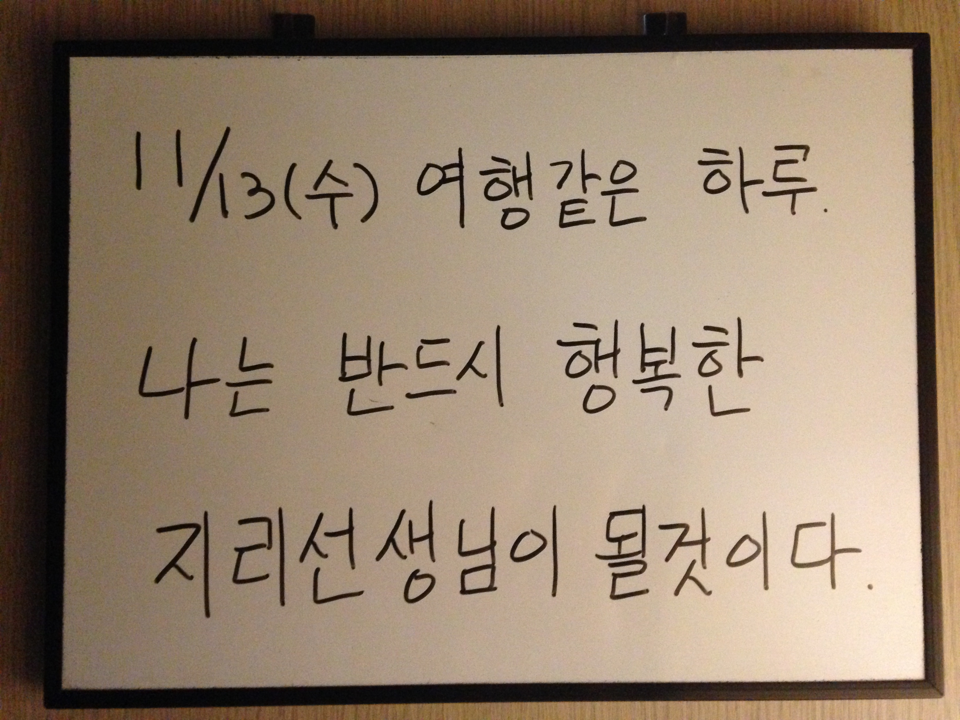 11/13(수) 여행같은 하루.
나는 반드시 행복한
지리선생님이 될것이다.